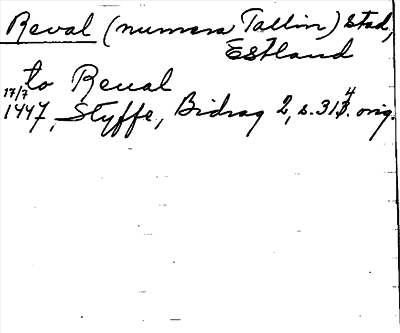 Reval (numera Tallin) stad,
Estland
to Reval
17/7
1447, Styffe, Bidrag 2, s. 314. orig.